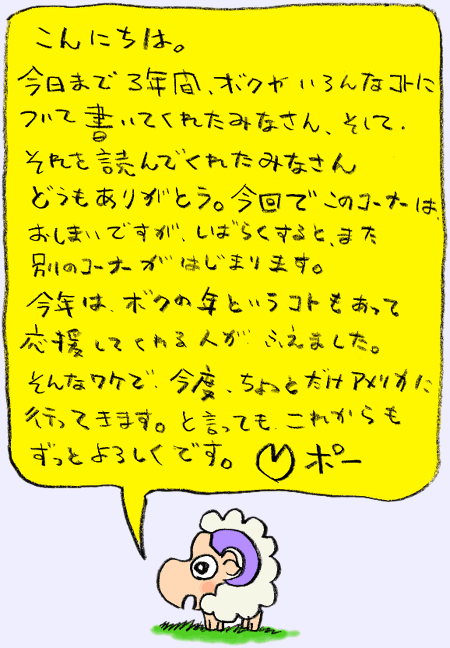 こんにちは。
今日まで3年間、ボクやいろんなコトに
ついて書いてくれたみなさん、そして、
それを読んでくれたみなさん
どうもありがとう。今回でこのコーナーは、
おしまいですが、しばらくすると、また
別のコーナーがはじまります。
今年は、ボクの年というコトもあって
応援してくれる人が、ふえました。
そんなワケで、今度、ちょっとだけアメリカに
行ってきます。と言っても、これからも
ずっとよろしくです。 ポー